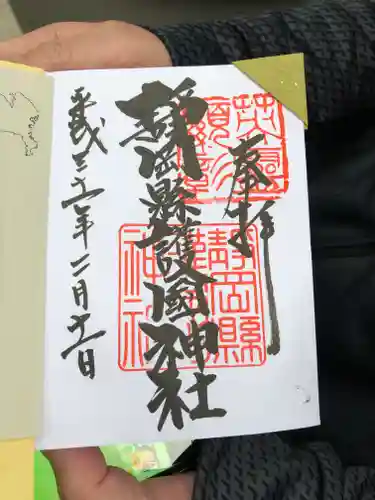 奉拝
静岡縣護國神社
平成三十一年二月十一日
静岡縣
神社